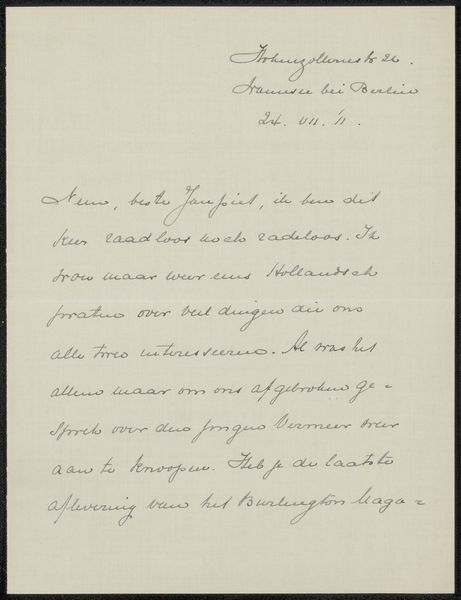 Hohenzollernstr 26.
Wannsee bei Berlin
24. VII. '11.
Neen, beste Jan piet, ik ben dit
keer raadloos noch radeloos. Ik
wou maar weer eens Hollandsch
praten over veel dingen die ons
alle twee interesseeren. Al was het
alleen maar om ons afgebroken ge=
sprek over den jongen Vermeer weer
aan te knoopen. Heb je de laatste
aflevering van het Burlington Maga=